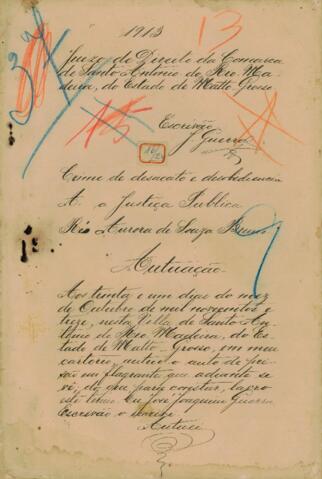 1913
13
Juizo de Direito da Comarca
de Santo Antonio do Rio Ma-
deira, do Estado de Matto Grosso
Escrivão
J Guerra
Crime de desacato e desobediencia
A. a Justiça Publica
Ré Aurora de Souza
Autuação
Aos trinta e um dias do mez
de Outubro de mil novecentos e
treze, nesta Villa de Santo An-
tonio do Rio Madeira, do Es-
tado de Matto-Grosso, em meu
cartorio, autúo o auto de pri-
são em flagrante que adiante se
vê; do que para constar, lavro
este termo. Eu José Joaquim Guerra
Escrivão o escrevi
Autuei